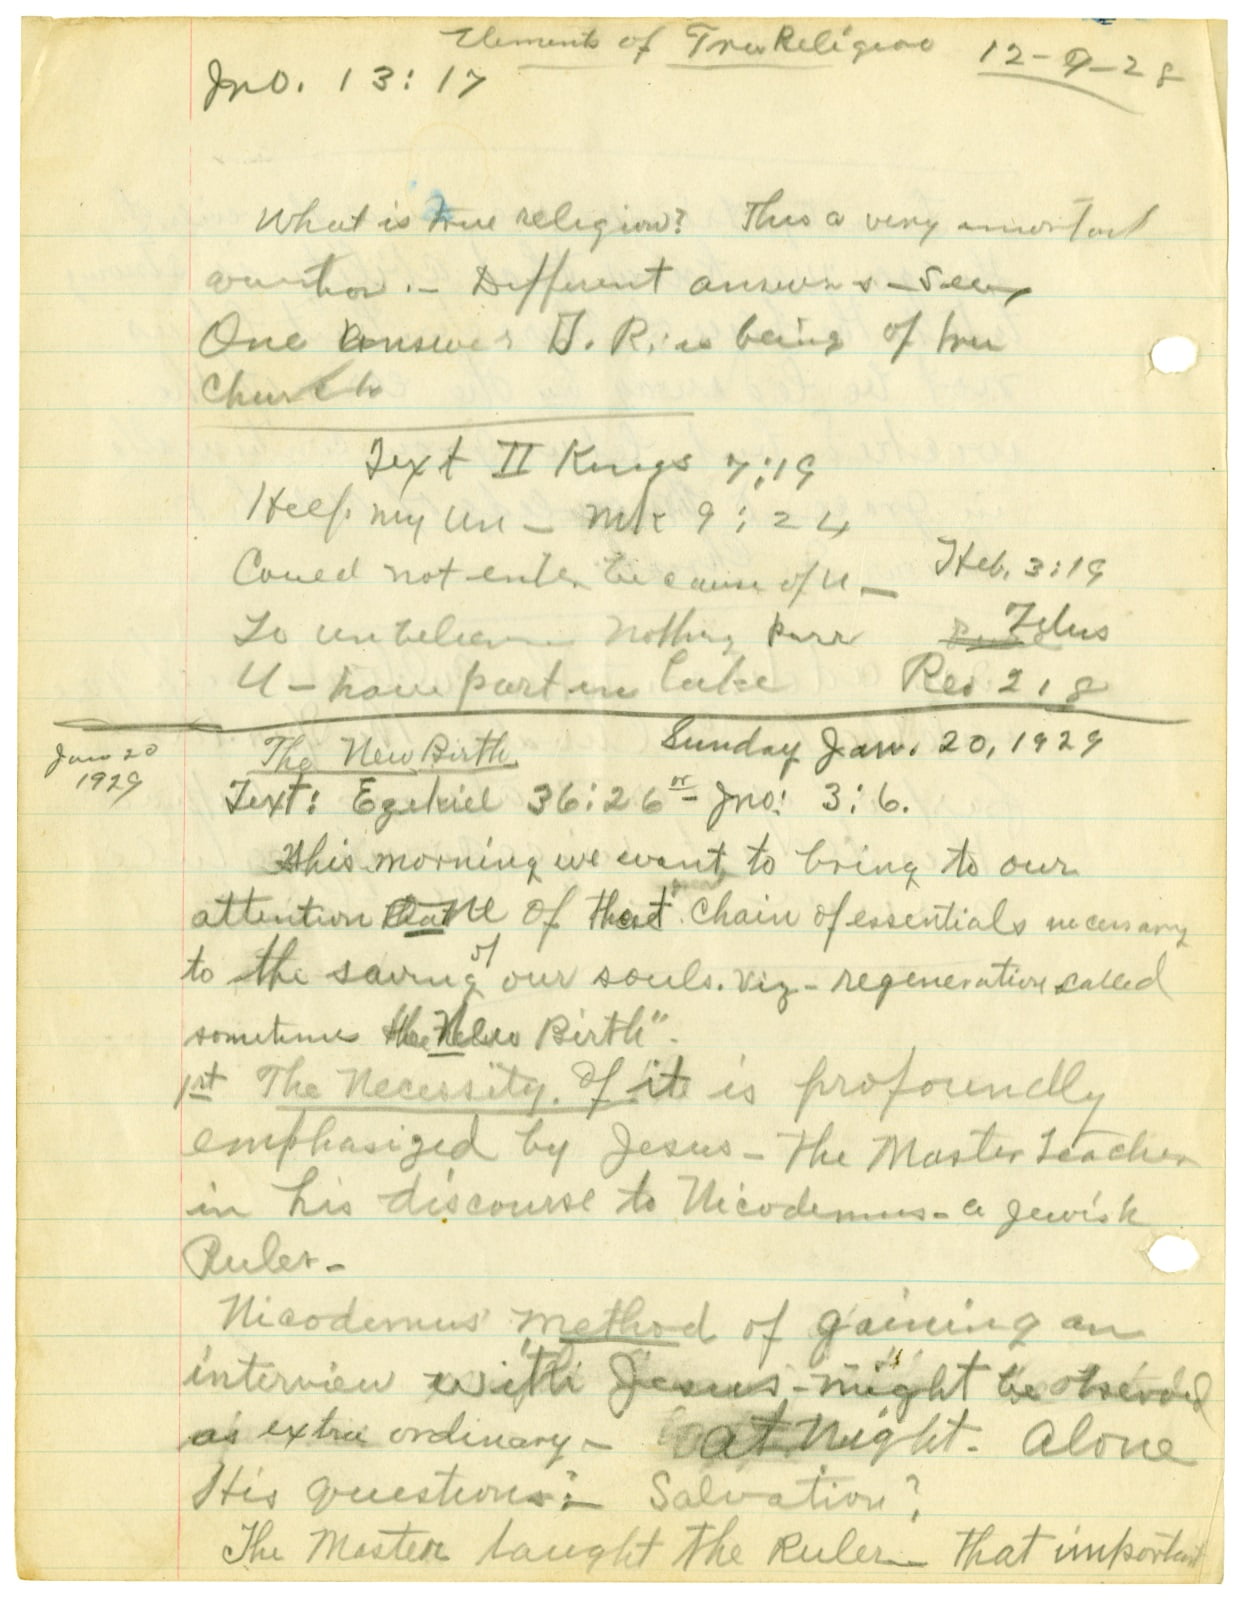 Elements of True Religion 12-9-28
Jno. 13:17
What is true religion? This a very important
question.- Different answers -
One answer T. R. is being of true
Church
Text II Kings 7:19
Help my Un - Mk 9:24
Could not enter because of U - Heb. 3:19
To unbeliev nothing pure Titus
U - have part in lake Rev 21 8
Jan 20
1929
The New Birth Sunday Jan. 20, 1929
Text: Ezekiel 36:26 or Jno: 3:6.
This morning we want to bring to our
attention one of that chain of essentials necessary
to the saving of our souls. viz - regeneration called
sometimes the New Birth".
1st The Necessity. Of it is profoundly
emphasized by Jesus - the Master Teacher
in his discourse to Nicodemus - a Jewish
Ruler -
Nicodemus' method of gaining an
interview with Jesus - might be observed
as extra ordinary - at Night. Alone
His questions? - Salvation?
The Master taught the Ruler - that important